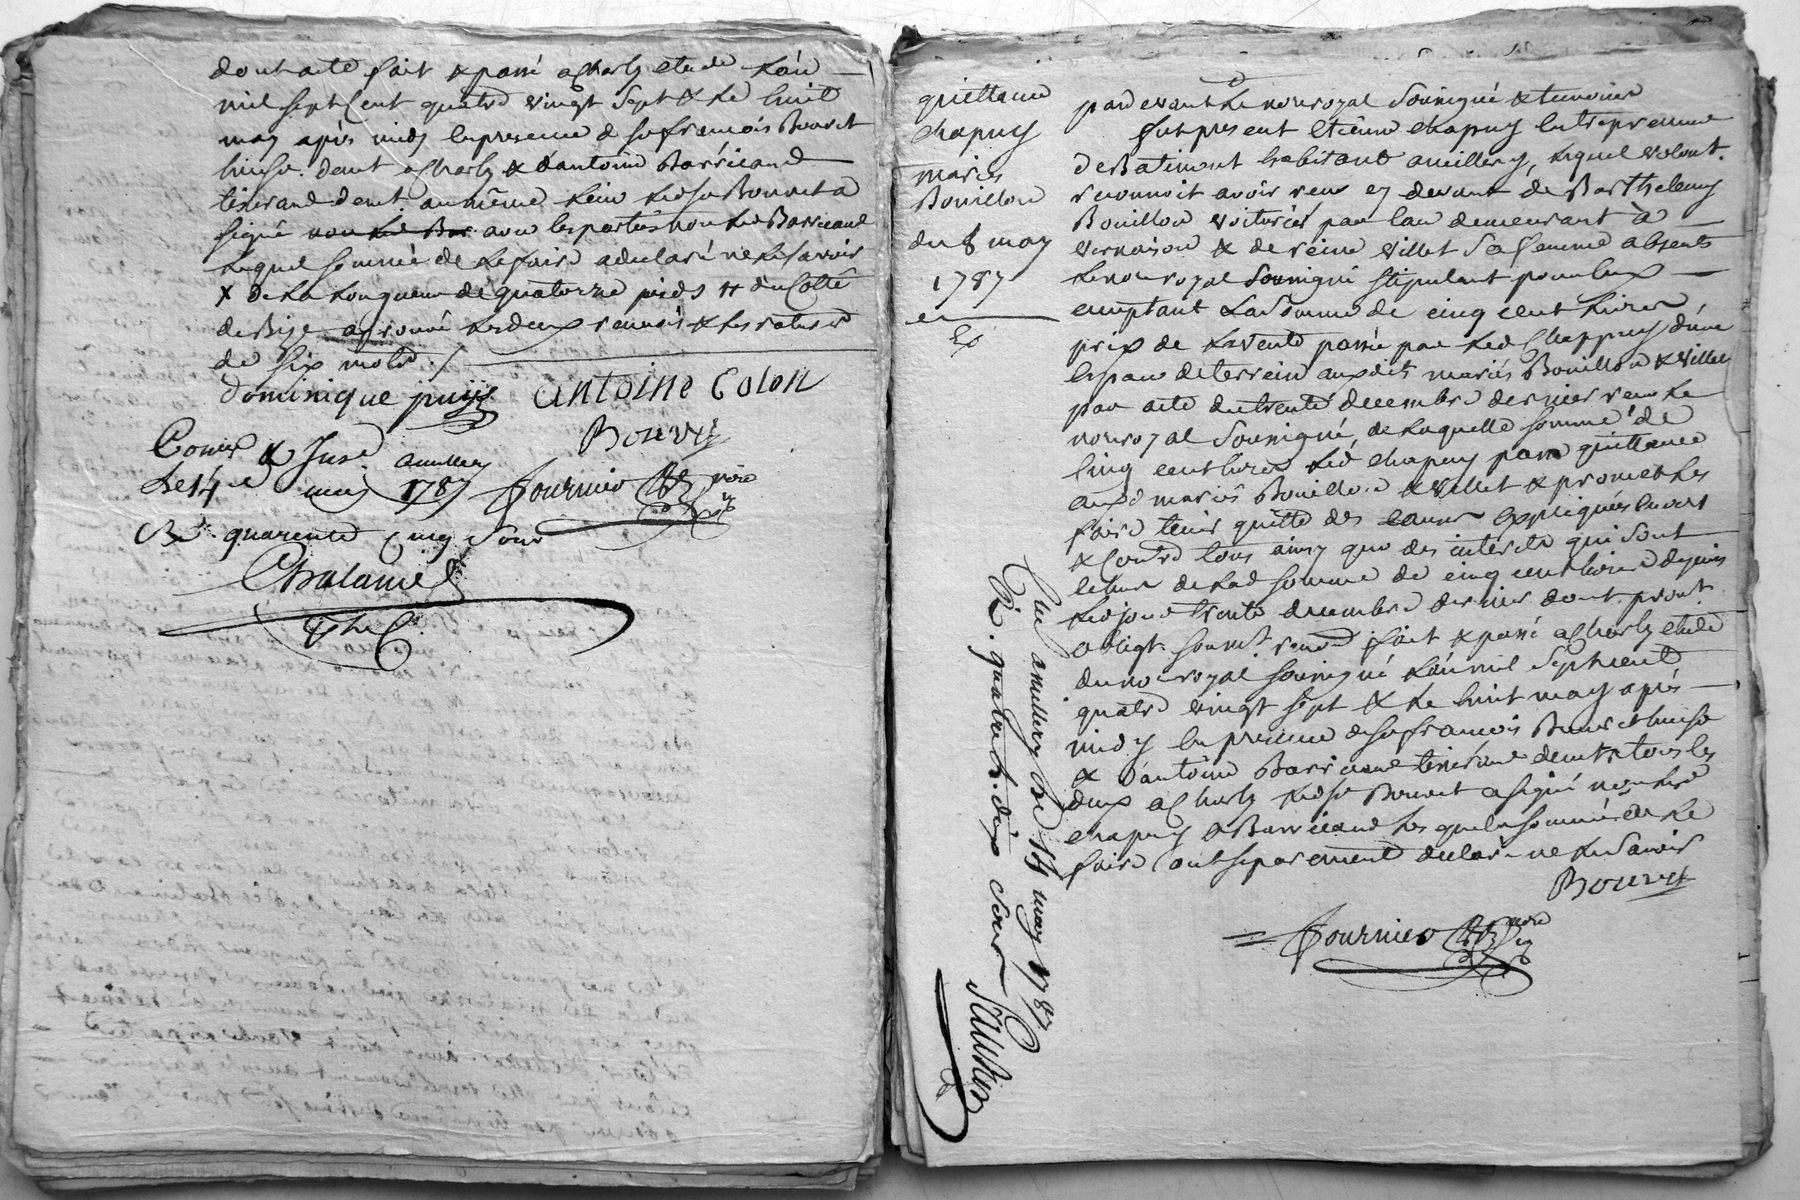 dont acte fait & passé a Charly etude l'an
mil sept Cent quatre vingt sept & le huit
may après midy en presence de sr francois Bouvet
huiss. demt a Charly & d'antoine Barricand
tisserand demt au même lieu led sr Bouvet a
signé non led Bar avec les parties non led Barricand
lequel sommé de le faire a declaré ne le savoir
X de la longueur de quatorze pieds # du Cotté
de Bize approuvé les deux renvois & la rature
de six mots /
dominique puy antoine Colon
Bouvet
Conlé & Insé a millery
Le 14e may 1787 Fournier nore
R. quarente cinq sous
Chalamel
quittance
chapuy
mariés
Bouillon
du 8 may
1787
Ex
pardevant le nore royal soussigné & temoins
fut present etienne chapuy entrepreneur
de Batiment habitant a millery, lequel volont.
reconnoit avoir reçu cy devant de Barthelemy
Bouillon voiturier par eau demeurant à
vernaison & de reine villet sa femme absents
le nore royal soussigné stipulant pour eux
comptant la somme de cinq cent livres
prix de la vente passée par led Chappuy d'une
espace de terrein auxdits mariés Bouillon & villet
par acte du trente decembre dernier reçu le
nore royal soussigné, de laquelle somme de
cinq cent livres led chapuy passe quittance
auxd mariés Bouillon & villet & promet les
faire tenir quitte des causes expliquées envers
& contre tous ainsy que des interets qui sont
echus de lad somme de cinq cent livres depuis
led jour trente decembre dernier dont prom.
obligt. soumt. renon fait & passé a Charly etude
du nore royal soussigné l'an mil sept cent
quatre vingt sept & le huit may après
midy en presence de sr francois Bouvet huiss
& d'antoine Barricand tisserand demts tous les
deux a Charly led sr Bouvet a signé non led
chapuy & Barricand lesquels sommés de le
faire ont separement declaré ne le savoir
Bouvet
Fournier nore
Clé a millery Le 14 may 1787
R. quatre L. dix sous